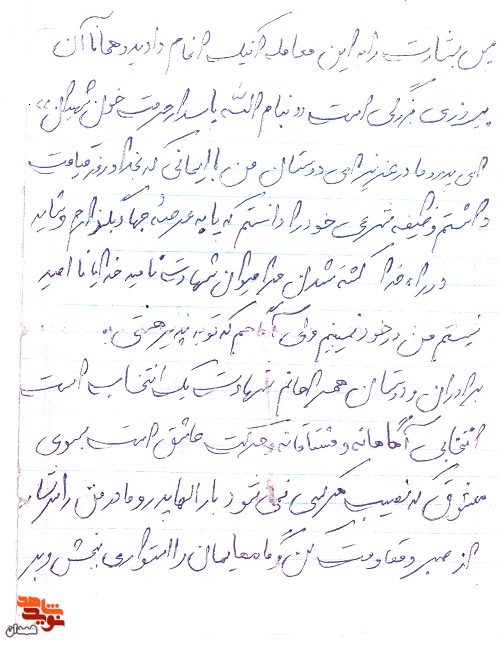 پس بشارت را به این معامله که نیک انجام دادید و همانا آن
پیروزی بزرگی است «و بنام الله پاسدار حرمت خون شهیدان»
ای پدر و مادر عزیز ای دوستان من با ایمانی که بخدا و روز قیامت
داشتم وظیفه شرعی خود را دانستم که پا به عرصه جهاد بگذارم و شاید
در راه خدا کشته شدن مرا عنوان شهادت نامید خدایا نا امید
نیستم من در خود نمیبینم ولی آگاهم که توبه پذیر هستی
برادران و دوستان همراهانم شهادت یک انتخاب است
انتخابی آگاهانه و مشتاقانه و حرکت عاشق است بسوی
معشوق که نصیب هر کسی نمی شود بار الها پدر و مادر من را سرشار
از صبر و مقاومت کن و گامهایمان را استواری ببخش و بر
نوید شاهد
همدان